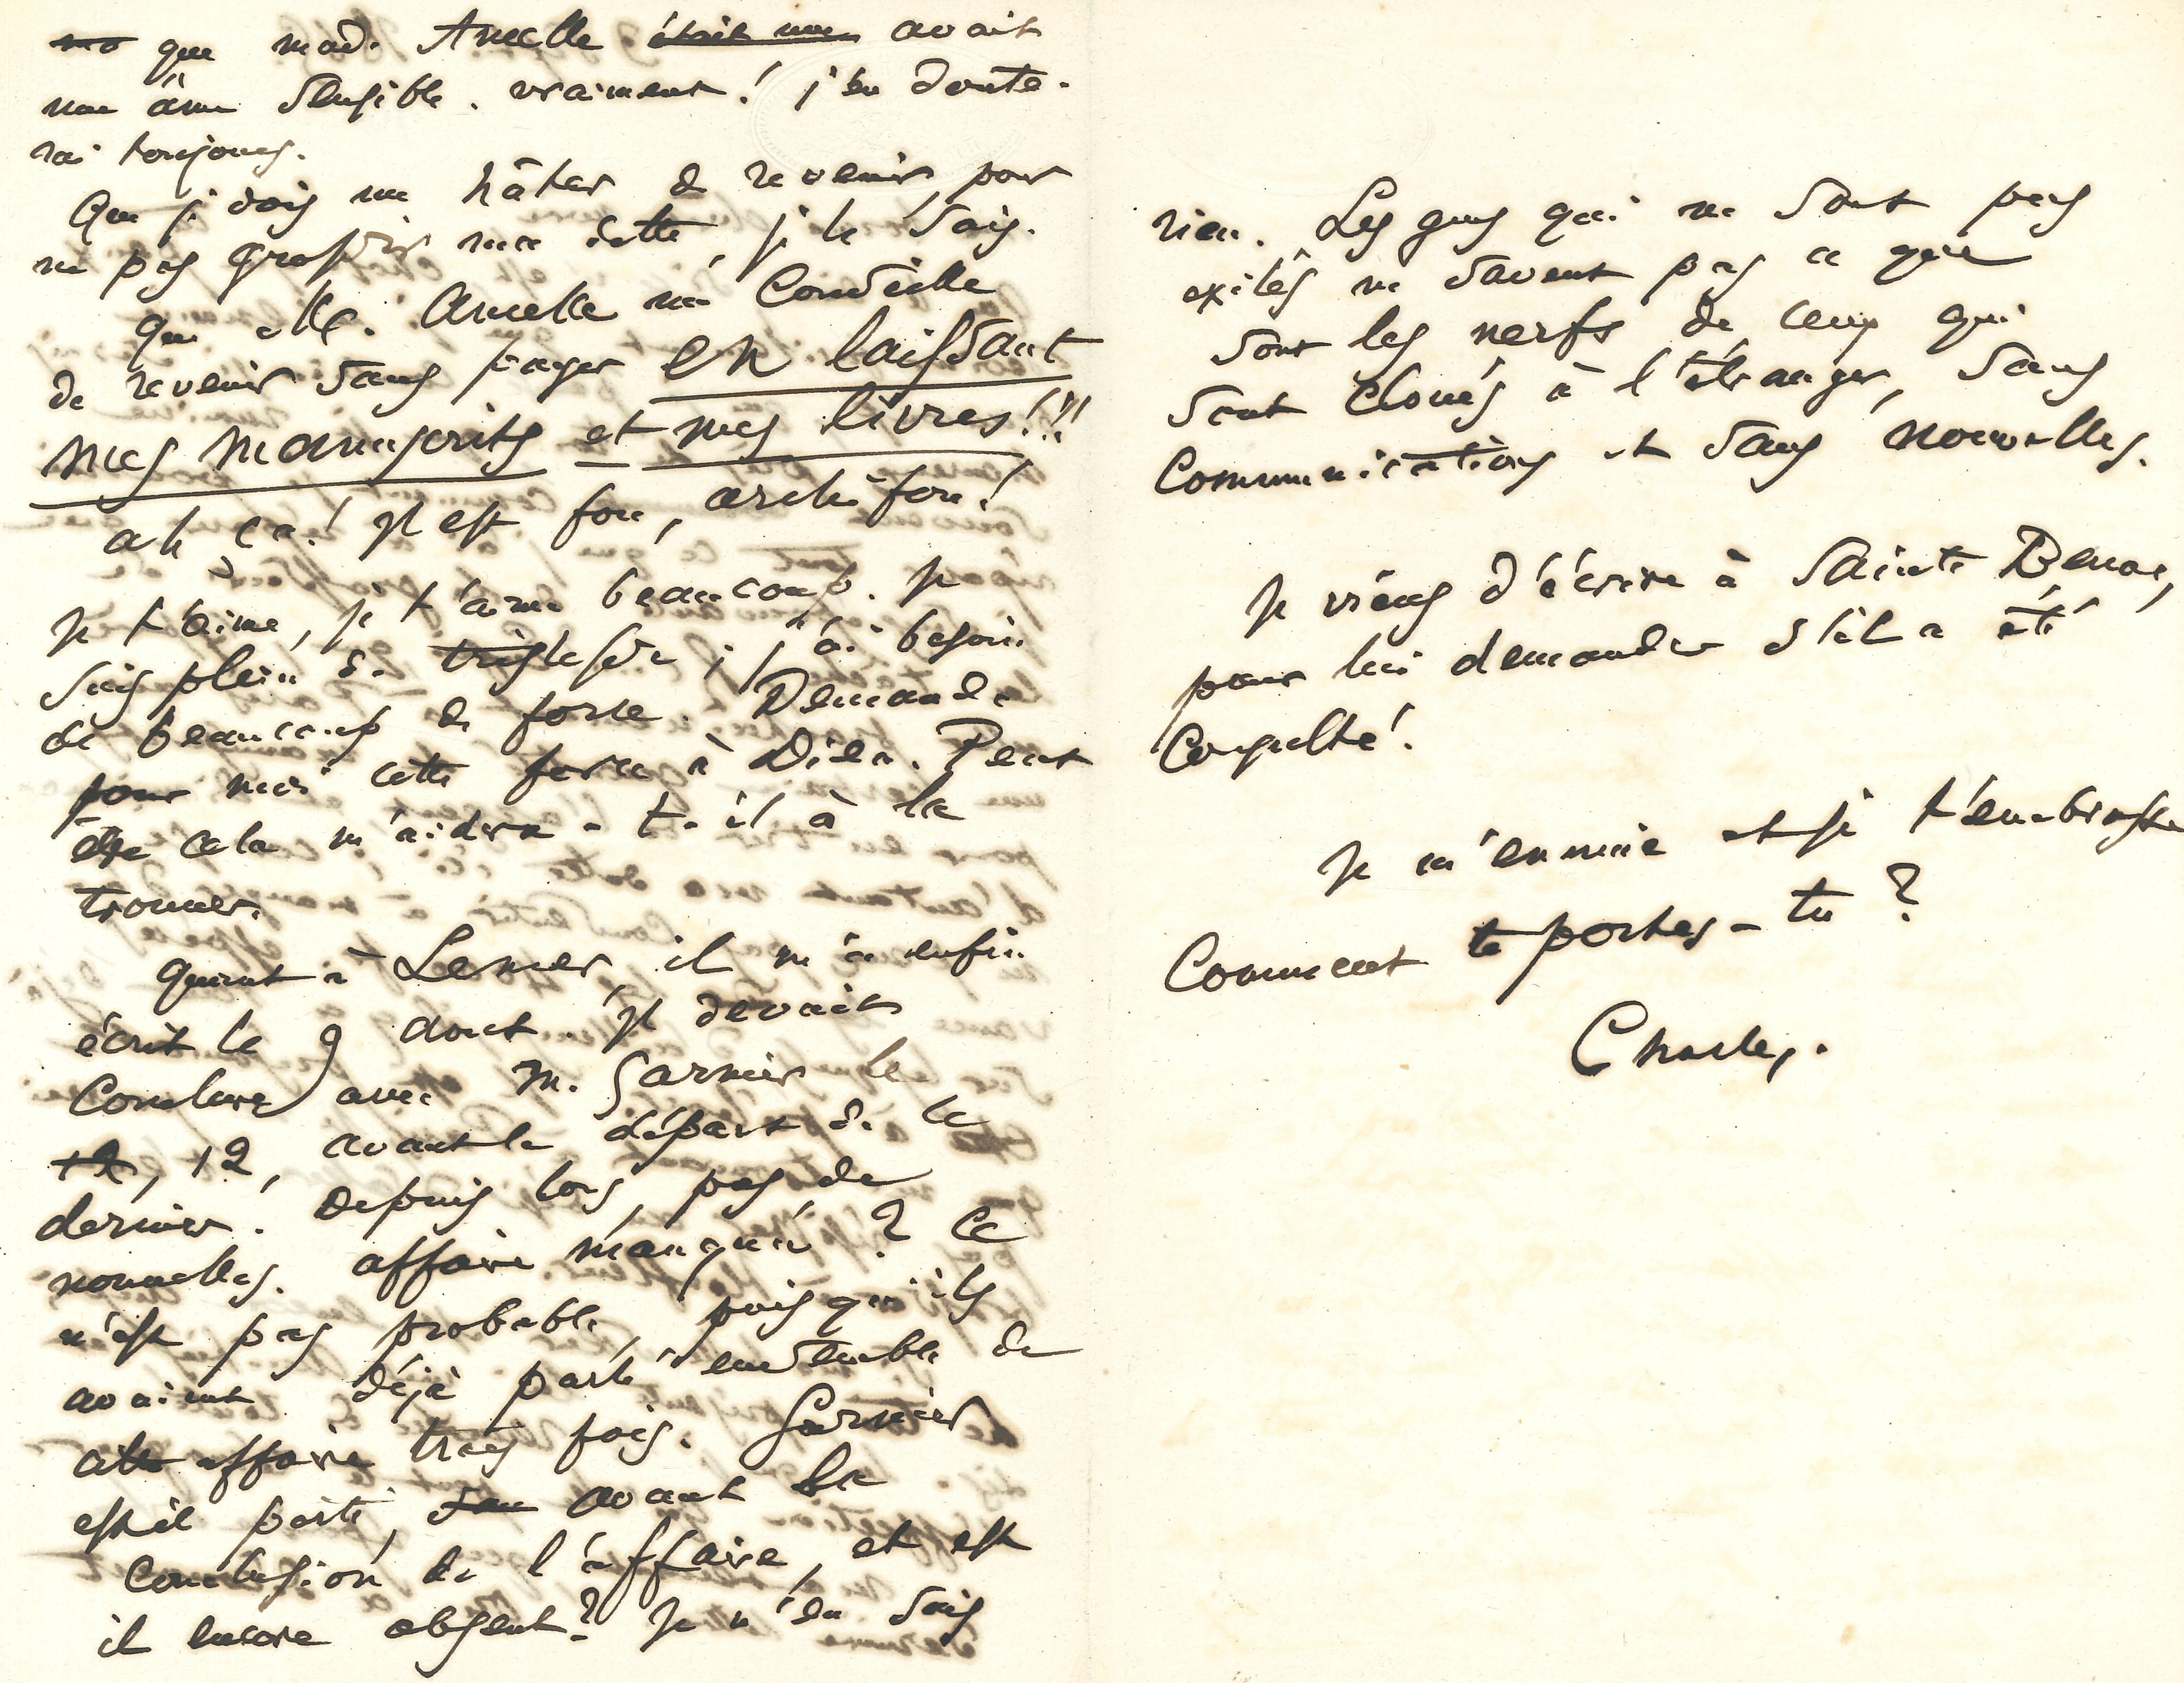 que mad. Ancelle était une avait
une âme sensible. vraiment! j'en doute-
rai toujours.
Que je dois me hâter de revenir, pour
ne pas grossir ma dette, je le sais.
Que M. Ancelle me Conseille
de revenir sans payer en laissant
mes manuscrits et mes livres!!!
ah ça! il est fou, archifou!
Je t'aime, je t'aime beaucoup. Je
suis plein de tristesse; j'ai besoin
de beaucoup de force. Demande
pour moi cette force à Dieu. Peut
être cela m'aidera-t-il à la
trouver.
Quant à Lemer, il m'a enfin
écrit le 9 aout. Il devait
Conclure avec M. Garnier le
12, 12, avant le départ de ce
dernier. Depuis lors, pas de
nouvelles. affaire manquée? Ce
n'est pas probable, puisqu'ils
avaient déjà parlé ensemble de
cette affaire trois fois. Garnier
est il parti, avant la
Conclusion de l'affaire, et est
il encore absent? Je n'en sais
rien. Les gens qui ne sont pas
exilés ne savent pas ce que
sont les nerfs de ceux qui
sont cloués à l'étranger, sans
Communications et sans nouvelles.
Je viens d'écrire à Sainte Beuve,
pour lui demander s'il a été
Consulté.
Je m'ennuie et je t'embrasse
Comment te portes-tu?
Charles.